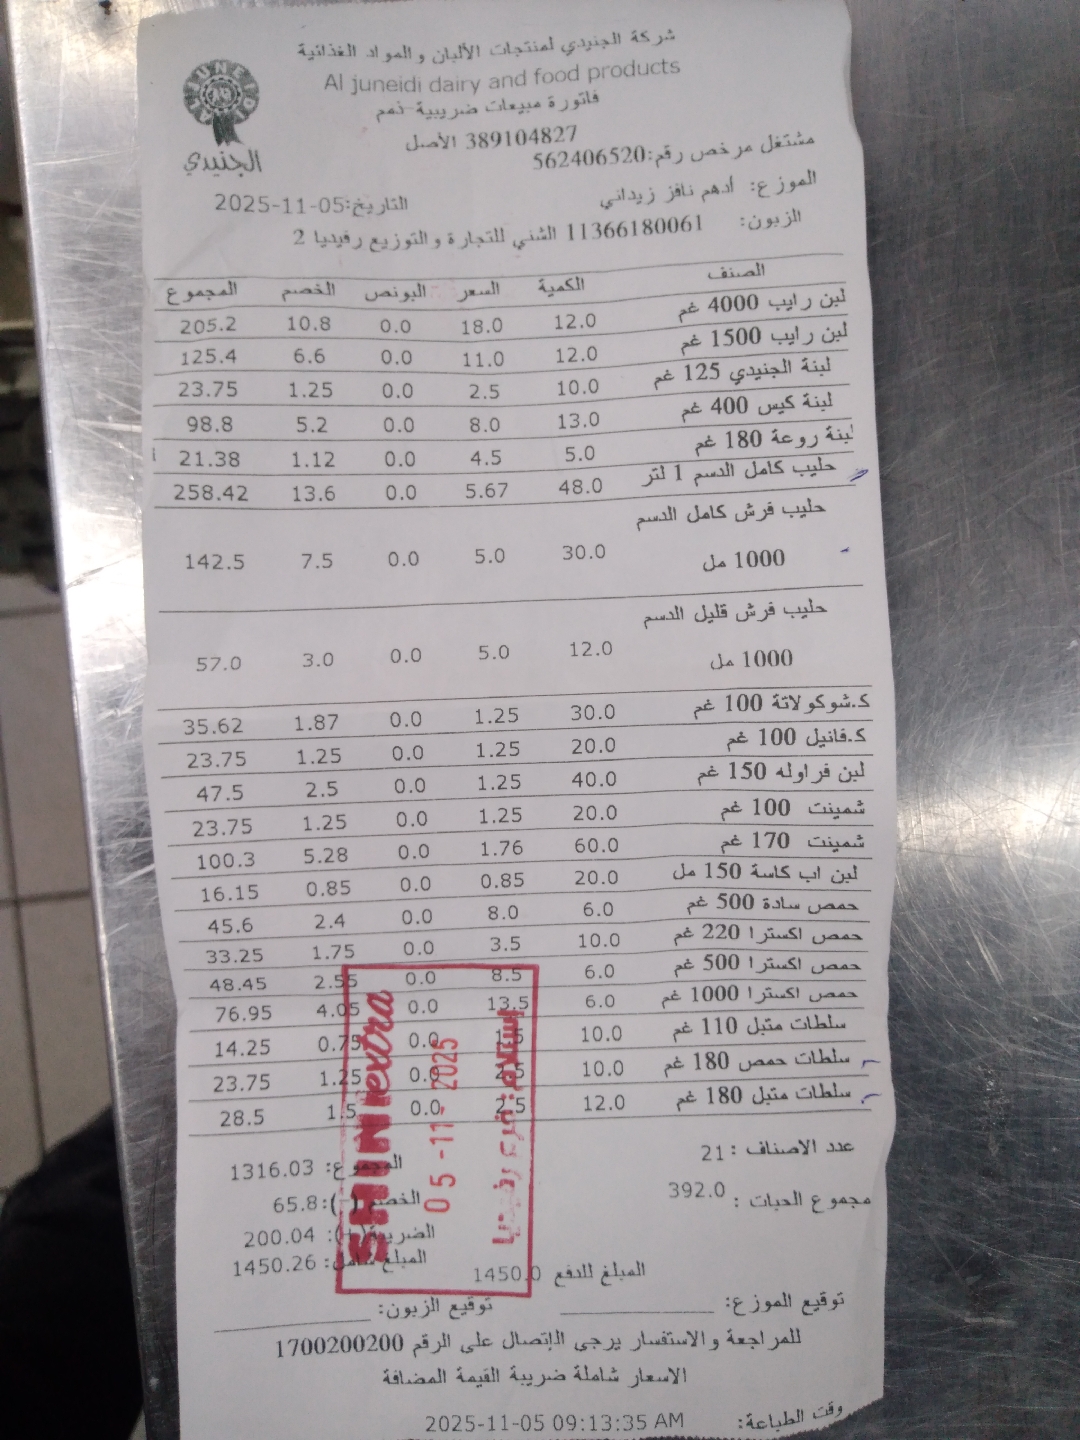 شركة الجنيدي لمنتجات الألبان والمواد الغذائية
Al juneidi dairy and food products
فاتورة مبيعات ضريبية-ذمم
AL JUNEIDI
الجنيدي
389104827 الأصل
مشتغل مرخص رقم:562406520
الموزع: أدهم نافز زيداني
التاريخ:2025-11-05
الزبون: 11366180061 الشني للتجارة والتوزيع رفيديا 2
الصنف الكمية السعر البونص الخصم المجموع
لبن رايب 4000 غم 12.0 18.0 0.0 10.8 205.2
لبن رايب 1500 غم 12.0 11.0 0.0 6.6 125.4
لبنة الجنيدي 125 غم 10.0 2.5 0.0 1.25 23.75
لبنة كيس 400 غم 13.0 8.0 0.0 5.2 98.8
لبنة روعة 180 غم 5.0 4.5 0.0 1.12 21.38
حليب كامل الدسم 1 لتر 48.0 5.67 0.0 13.6 258.42
حليب فرش كامل الدسم
1000 مل 30.0 5.0 0.0 7.5 142.5
حليب فرش قليل الدسم
1000 مل 12.0 5.0 0.0 3.0 57.0
ك.شوكولاتة 100 غم 30.0 1.25 0.0 1.87 35.62
ك.فانيل 100 غم 20.0 1.25 0.0 1.25 23.75
لبن فراوله 150 غم 40.0 1.25 0.0 2.5 47.5
شمينت 100 غم 20.0 1.25 0.0 1.25 23.75
شمينت 170 غم 60.0 1.76 0.0 5.28 100.3
لبن اب كاسة 150 مل 20.0 0.85 0.0 0.85 16.15
حمص سادة 500 غم 6.0 8.0 0.0 2.4 45.6
حمص اكسترا 220 غم 10.0 3.5 0.0 1.75 33.25
حمص اكسترا 500 غم 6.0 8.5 0.0 2.55 48.45
حمص اكسترا 1000 غم 6.0 13.5 0.0 4.05 76.95
سلطات متبل 110 غم 10.0 1.5 0.0 0.75 14.25
سلطات حمص 180 غم 10.0 2.5 0.0 1.25 23.75
سلطات متبل 180 غم 12.0 2.5 0.0 1.5 28.5
عدد الاصناف : 21
المجموع: 1316.03
مجموع الحبات : 392.0
الخصم (-):65.8
الضريبة(+): 200.04
المبلغ شامل: 1450.26
المبلغ للدفع 1450.0
SHINI extra
05-11-2025
استلام: فرع رفيديا
توقيع الموزع: ____________ توقيع الزبون: ____________
للمراجعة والاستفسار يرجى الإتصال على الرقم 1700200200
الاسعار شاملة ضريبة القيمة المضافة
وقت الطباعة: 2025-11-05 09:13:35 AM